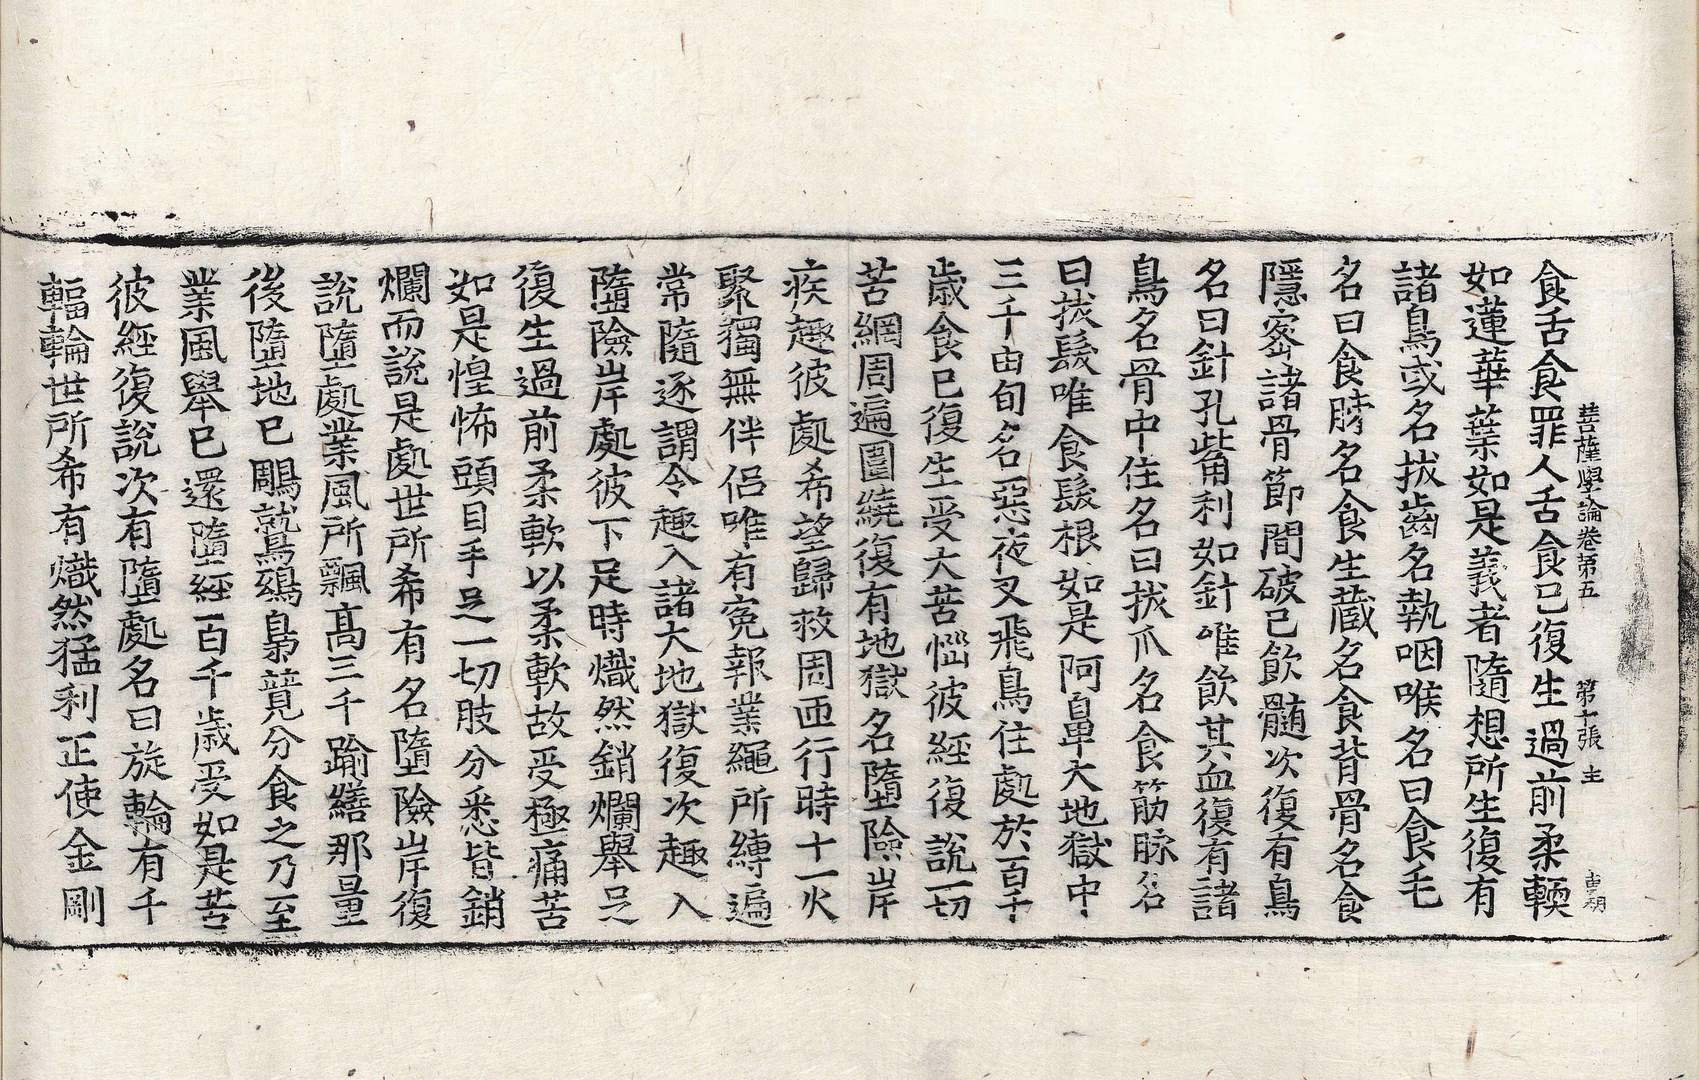 菩薩學論卷第五 第十張 主
食舌食罪人舌食已復生過前柔輭
如蓮華葉如是義者隨想所生復有
諸鳥或名拔齒名執咽喉名曰食毛
名曰食脾名食生蔵名食背骨名食
隱密諸骨節間破已飲髓次復有鳥
名曰針孔觜利如針唯飲其血復有諸
鳥名骨中住名曰拔爪名食筋脉名
曰拔髮唯食髮根如是阿鼻大地獄中
三千由旬名惡夜叉飛鳥住處於百千
歳食已復生受大苦惱彼經復說一切
苦網周遍圍繞復有地獄名墮險岸
疾趣彼處希望歸救周匝行時十一火
聚獨無伴侣唯有寃報業繩所縛遍
常隨逐謂令趣入諸大地獄復次趣入
墮險岸處彼下足時熾然銷爛舉足
復生過前柔軟以柔軟故受極痛苦
如是惶怖頭目手足一切肢分悉皆銷
爛而說是處世所希有名墮險岸復
說墮處業風所飄髙三千踰繕那量
後墮地已鵰鷲鵄梟競分食之乃至
業風舉已還墮經百千歳受如是苦
彼經復說次有墮處名曰旋輪有千
輻輪世所希有熾然猛利正使金剛